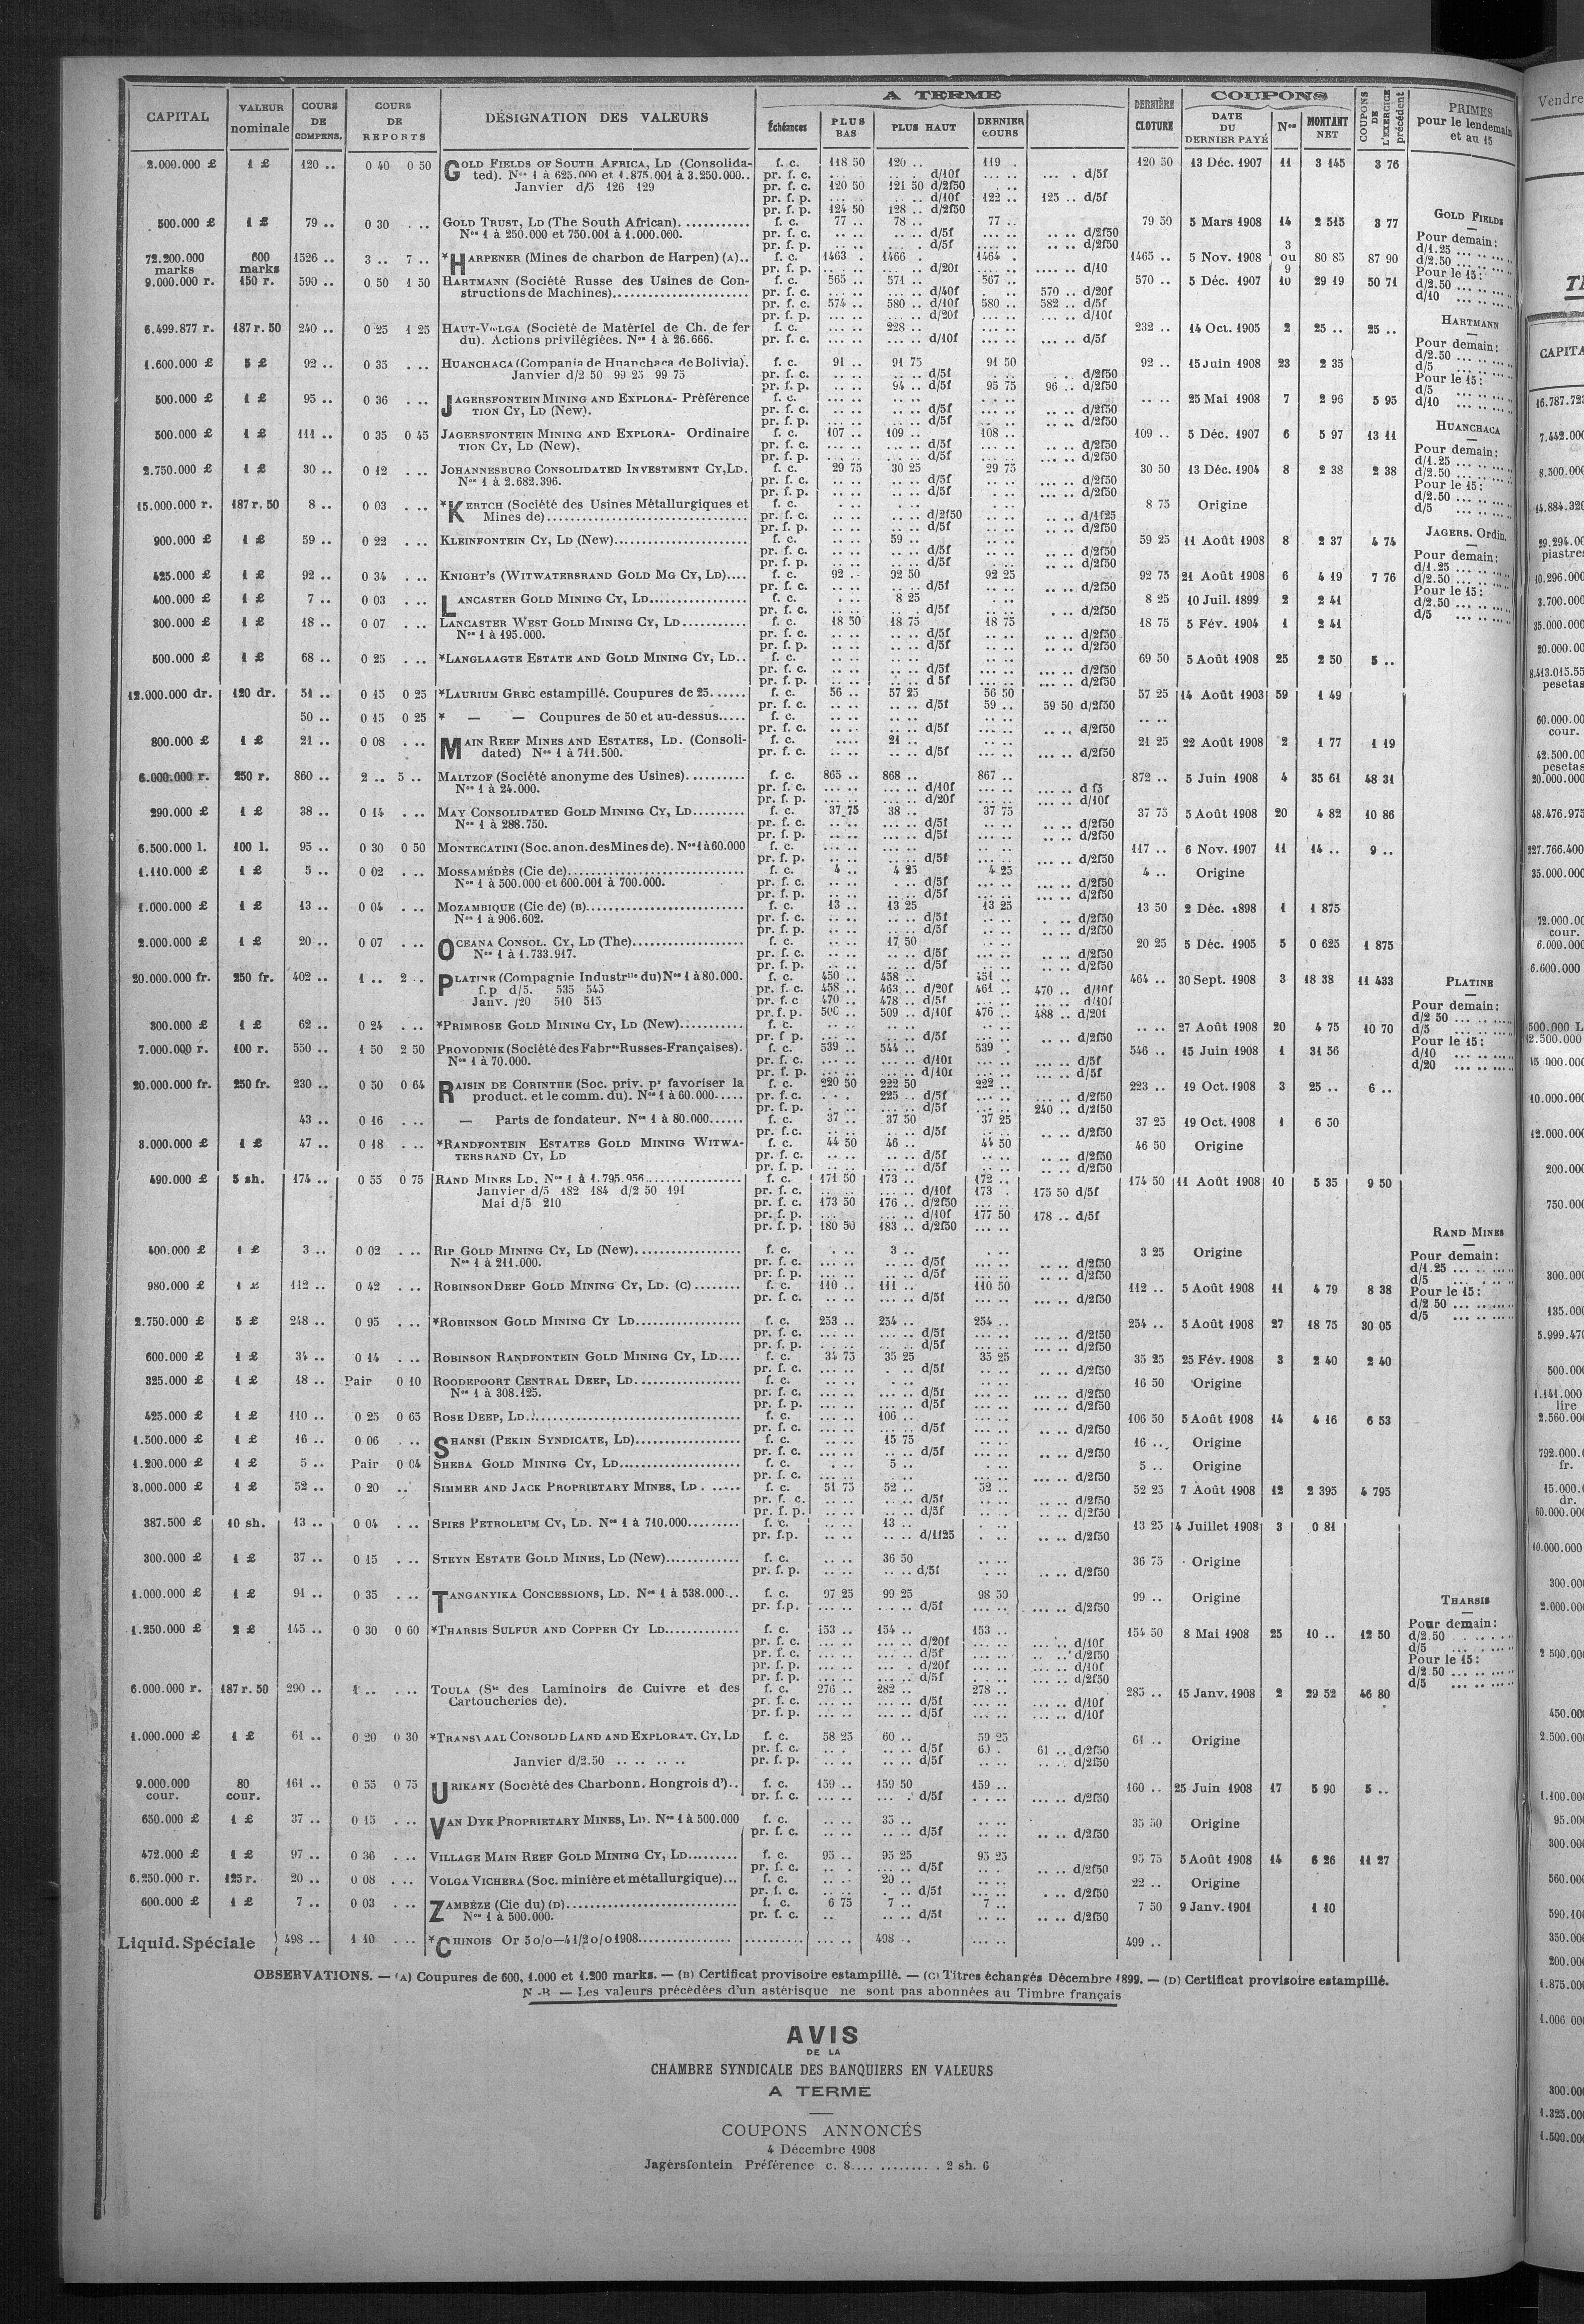 CAPITAL VALEUR nominale COURS DE COMPENS. COURS DE REPORTS DÉSIGNATION DES VALEURS A TERME Échéances PLUS BAS PLUS HAUT DERNIER COURS DERNIÈRE CLOTURE COUPONS DATE DU DERNIER PAYÉ Nos MONTANT NET COUPONS DE L'EXERCICE précédent PRIMES pour le lendemain et au 15
2.000.000 £ 1 £ 120 .. 0 40 0 50 GOLD FIELDS OF SOUTH AFRICA, LD (Consolida- f. c. 118 50 120 .. 119 . 120 50 13 Déc. 1907 11 3 145 3 76
ted). Nos 1 à 625.000 et 1.875.001 à 3.250.000.. pr. f. c. d/10f d/5f
Janvier d/5 126 129 pr. f. c. 120 50 121 50 d/2f50
pr. f. p. d/10f 122 .. 125 .. d/5f
pr. f. p. 124 50 128 .. d/2f50
500.000 £ 1 £ 79 .. 0 30 . .. GOLD TRUST, LD (The South African)............ f. c. 77 .. 78 .. 77 .. 79 50 5 Mars 1908 14 2 515 3 77
Nos 1 à 250.000 et 750.001 à 1.000.000. pr. f. c. d/5f d/2f50
pr. f. p. d/5f d/2f50
72.200.000 marks 600 marks 1526 .. 3 .. 7 .. *HARPENER (Mines de charbon de Harpen) (A).. f. c. 1463 . 1466 . 1464 . 1465 .. 5 Nov. 1908 3 ou 9 80 85 87 90
pr. f. p. d/20f d/10
9.000.000 r. 150 r. 590 .. 0 50 1 50 HARTMANN (Société Russe des Usines de Con- f. c. 565 .. 571 .. 567 .. 570 .. 5 Déc. 1907 10 29 19 50 71
structions de Machines)........................ pr. f. c. d/40f 570 .. d/20f
pr. f. c. 574 .. 580 .. d/10f 580 .. 582 .. d/5f
pr. f. p. d/20f d/10f
6.499.877 r. 187 r. 50 240 .. 0 25 1 25 HAUT-VOLGA (Société de Matériel de Ch. de fer f. c. 228 .. 232 .. 14 Oct. 1905 2 25 .. 25 ..
du). Actions privilégiées. Nos 1 à 26.666. pr. f. c. d/10f d/5f
1.600.000 £ 5 £ 92 .. 0 35 . .. HUANCHACA (Compania de Huanchaca de Bolivia). f. c. 91 .. 91 75 91 50 92 .. 15 Juin 1908 23 2 35
Janvier d/2 50 99 25 99 75 pr. f. c. d/5f d/2f50
pr. f. p. 94 .. d/5f 95 75 96 .. d/2f50
500.000 £ 1 £ 95 .. 0 36 . .. JAGERSFONTEIN MINING AND EXPLORA- Préférence f. c. .. .. 25 Mai 1908 7 2 96 5 95
TION CY, LD (New). pr. f. c. d/5f d/2f50
pr. f. p. d/5f d/2f50
500.000 £ 1 £ 111 .. 0 35 0 45 JAGERSFONTEIN MINING AND EXPLORA- Ordinaire f. c. 107 .. 109 .. 108 .. 109 .. 5 Déc. 1907 6 5 97 13 11
TION CY, LD (New). pr. f. c. d/5f d/2f50
pr. f. p. d/5f d/2f50
2.750.000 £ 1 £ 30 .. 0 12 . .. JOHANNESBURG CONSOLIDATED INVESTMENT CY, LD. f. c. 29 75 30 25 29 75 30 50 13 Déc. 1904 8 2 38 2 38
Nos 1 à 2.682.396. pr. f. c. d/5f d/2f50
pr. f. p. d/5f d/2f50
15.000.000 r. 187 r. 50 8 .. 0 03 . .. *KERTCH (Société des Usines Métallurgiques et f. c. 8 75 Origine
Mines de)................................ pr. f. c. d/2f50 d/1f25
pr. f. p. d/5f d/2f50
900.000 £ 1 £ 59 .. 0 22 . .. KLEINFONTEIN CY, LD (New)........................ f. c. 59 .. 59 25 11 Août 1908 8 2 37 4 74
pr. f. c. d/5f d/2f50
pr. f. p. d/5f d/2f50
425.000 £ 1 £ 92 .. 0 34 . .. KNIGHT'S (WITWATERSRAND GOLD MG CY, LD).... f. c. 92 .. 92 50 92 25 92 75 21 Août 1908 6 4 19 7 76
pr. f. c. d/5f d/2f50
400.000 £ 1 £ 7 .. 0 03 . .. LANCASTER GOLD MINING CY, LD................. f. c. 8 25 8 25 10 Juil. 1899 2 2 41
pr. f. c. d/5f d/2f50
300.000 £ 1 £ 18 .. 0 07 . .. LANCASTER WEST GOLD MINING CY, LD........... f. c. 18 50 18 75 18 75 18 75 5 Fév. 1904 1 2 41
Nos 1 à 195.000. pr. f. c. d/5f d/2f50
pr. f. p. d/5f d/2f50
500.000 £ 1 £ 68 .. 0 25 . .. *LANGLAAGTE ESTATE AND GOLD MINING CY, LD.. f. c. 69 50 5 Août 1908 25 2 50 5 ..
pr. f. c. d/5f d/2f50
pr. f. p. d 5f d/2f50
12.000.000 dr. 120 dr. 51 .. 0 15 0 25 *LAURIUM GREC estampillé. Coupures de 25...... f. c. 56 .. 57 25 56 50 57 25 14 Août 1903 59 1 49
pr. f. c. d/5f 59 .. 59 50 d/2f50
50 .. 0 15 0 25 * — — Coupures de 50 et au-dessus..... f. c. .. ..
pr. f. c. d/5f d/2f50
800.000 £ 1 £ 21 .. 0 08 . .. MAIN REEF MINES AND ESTATES, LD. (Consoli- f. c. 21 .. 21 25 22 Août 1908 2 1 77 1 19
dated) Nos 1 à 711.500. pr. f. c. d/5f d/2f50
6.000.000 r. 250 r. 860 .. 2 .. 5 .. MALTZOF (Société anonyme des Usines).......... f. c. 865 .. 868 .. 867 .. 872 .. 5 Juin 1908 4 35 61 48 31
Nos 1 à 24.000. pr. f. c. d/10f d f5
pr. f. p. d/20f d/10f
290.000 £ 1 £ 38 .. 0 14 . .. MAY CONSOLIDATED GOLD MINING CY, LD......... f. c. 37 75 38 .. 37 75 37 75 5 Août 1908 20 4 82 10 86
Nos 1 à 288.750. pr. f. c. d/5f d/2f50
pr. f. p. d/5f d/2f50
6.500.000 l. 100 l. 95 .. 0 30 0 50 MONTECATINI (Soc. anon. des Mines de). Nos 1 à 60.000 f. c. 117 .. 6 Nov. 1907 11 14 .. 9 ..
pr. f. p. d/5f d/2f50
1.110.000 £ 1 £ 5 .. 0 02 . .. MOSSAMÉDÈS (Cie de)............................... f. c. 4 .. 4 25 4 25 4 .. Origine
Nos 1 à 500.000 et 600.001 à 700.000. pr. f. c. d/5f d/2f50
pr. f. p. d/5f d/2f50
1.000.000 £ 1 £ 13 .. 0 04 . .. MOZAMBIQUE (Cie de) (B)........................... f. c. 13 .. 13 25 13 25 13 50 2 Déc. 1898 1 1 875
Nos 1 à 906.602. pr. f. c. d/5f d/2f50
pr. f. p. d/5f d/2f50
2.000.000 £ 1 £ 20 .. 0 07 . .. OCEANA CONSOL. CY, LD (The)................... f. c. 17 50 20 25 5 Déc. 1905 5 0 625 1 875
Nos 1 à 1.733.917. pr. f. c. d/5f d/2f50
pr. f. p. d/5f d/2f50
20.000.000 fr. 250 fr. 402 .. 1 .. 2 .. PLATINE (Compagnie Industrlle du) Nos 1 à 80.000. f. c. 450 .. 458 .. 451 .. 464 .. 30 Sept. 1908 3 18 38 11 433
f.p d/5. 535 545 pr. f. c. 458 .. 463 .. d/20f 461 .. 470 .. d/10f
Janv. /20 510 515 pr. f. c 470 .. 478 .. d/5f d/10f
pr. f. p. 506 .. 509 .. d/10f 476 .. 488 .. d/20f
300.000 £ 1 £ 62 .. 0 24 . .. *PRIMROSE GOLD MINING CY, LD (New)........... f. c. .. .. 27 Août 1908 20 4 75 10 70
pr. f p. d/5f d/2f50
7.000.000 r. 100 r. 550 .. 1 50 2 50 PROVODNIK (Société des Fabres Russes-Françaises). f. c. 539 .. 544 .. 539 . 546 .. 15 Juin 1908 1 31 56
Nos 1 à 70.000. pr. f. c. d/10f d/5f
pr. f. p. d/10f d/5f
20.000.000 fr. 250 fr. 230 .. 0 50 0 64 RAISIN DE CORINTHE (Soc. priv. pr favoriser la f. c. 220 50 222 50 222 .. 223 .. 19 Oct. 1908 3 25 .. 6 ..
product. et le comm. du). Nos 1 à 60.000..... pr. f. c. 225 .. d/5f d/2f50
pr. f. p. d/5f 240 .. d/2f50
43 .. 0 16 . .. — Parts de fondateur. Nos 1 à 80.000...... f. c. 37 .. 37 50 37 25 37 25 19 Oct. 1908 1 6 30
pr. f.c. d/5f d/2f50
3.000.000 £ 1 £ 47 .. 0 18 . .. *RANDFONTEIN ESTATES GOLD MINING WITWA- f. c. 44 50 46 .. 44 50 46 50 Origine
TERSRAND CY, LD pr. f. c. d/5f d/2f50
pr. f. p. d/5f d/2f50
490.000 £ 5 sh. 174 .. 0 55 0 75 RAND MINES LD. Nos 1 à 1.795.956................ f. c. 171 50 173 .. 172 .. 174 50 11 Août 1908 10 5 35 9 50
Janvier d/5 182 184 d/2 50 191 pr. f. c. d/10f 173 . 175 50 d/5f
Mai d/5 210 pr. f. c. 173 50 176 .. d/2f50
pr. f. p. d/10f 177 50 178 .. d/5f
pr. f. p. 180 50 183 .. d/2f50
400.000 £ 1 £ 3 .. 0 02 . .. RIP GOLD MINING CY, LD (New).................. f. c. 3 .. 3 25 Origine
Nos 1 à 211.000. pr. f. c. d/5f d/2f50
pr. f. p. d/5f d/2f50
980.000 £ 1 £ 112 .. 0 42 . .. ROBINSON DEEP GOLD MINING CY, LD. (C)........ f. c. 110 .. 111 .. 110 50 112 .. 5 Août 1908 11 4 79 8 38
pr. f. c. d/5f d/2f50
2.750.000 £ 5 £ 248 .. 0 95 . .. *ROBINSON GOLD MINING CY LD.................. f. c. 253 .. 254 .. 254 .. 254 .. 5 Août 1908 27 18 75 30 05
pr. f. c. d/5f d/2f50
pr. f. p. d/5f d/2f50
600.000 £ 1 £ 34 .. 0 14 . .. ROBINSON RANDFONTEIN GOLD MINING CY, LD.... f. c. 34 75 35 25 35 25 35 25 25 Fév. 1908 3 2 40 2 40
pr. f. c. d/5f d/2f50
325.000 £ 1 £ 18 .. Pair 0 10 ROODEPOORT CENTRAL DEEP, LD.................. f. c. 16 50 Origine
Nos 1 à 308.125. pr. f. c. d/5f d/2f50
pr. f. p. d/5f d/2f50
425.000 £ 1 £ 110 .. 0 25 0 65 ROSE DEEP, LD.................................... f. c. 106 .. 106 50 5 Août 1908 14 4 16 6 53
pr. f. c. d/5f d/2f50
1.500.000 £ 1 £ 16 .. 0 06 . .. SHANSI (PEKIN SYNDICATE, LD)................... f. c. 15 75 16 .. Origine
pr. f. c. d/5f d/2f50
1.200.000 £ 1 £ 5 .. Pair 0 04 SHEBA GOLD MINING CY, LD..................... f. c. 5 .. 5 .. Origine
pr. f. c. d/2f50
3.000.000 £ 1 £ 52 .. 0 20 .. SIMMER AND JACK PROPRIETARY MINES, LD . ..... f. c. 51 75 52 .. 52 .. 52 25 7 Août 1908 12 2 395 4 795
pr. f. c. d/5f d/2f50
pr. f. p. d/5f d/2f50
387.500 £ 10 sh. 13 .. 0 04 . .. SPIES PETROLEUM CY, LD. Nos 1 à 710.000......... f. c. 13 .. 13 25 4 Juillet 1908 3 0 81
pr. f.p. d/1f25 d/2f50
300.000 £ 1 £ 37 .. 0 15 . .. STEYN ESTATE GOLD MINES, LD (New)............. f. c. 36 50 36 75 Origine
pr. f. p. d/5f d/2f50
1.000.000 £ 1 £ 91 .. 0 35 . .. TANGANYIKA CONCESSIONS, LD. Nos 1 à 538.000... f. c. 97 25 99 25 98 50 99 .. Origine
pr. f.p. d/5f d/2f50
1.250.000 £ 2 £ 145 .. 0 30 0 60 *THARSIS SULFUR AND COPPER CY LD............. f. c. 153 .. 154 .. 153 .. 154 50 8 Mai 1908 25 10 .. 12 50
pr. f. c. d/20f d/10f
pr. f. c. d/5f d/2f50
pr. f. p. d/20f d/10f
pr. f. p. d/5f d/2f50
6.000.000 r. 187 r. 50 290 .. 1 .. . .. TOULA (Sté des Laminoirs de Cuivre et des f. c. 276 .. 282 .. 278 .. 285 .. 15 Janv. 1908 2 29 52 46 80
Cartoucheries de). pr. f. c. d/5f d/10f
pr. f. p. d/5f d/10f
1.000.000 £ 1 £ 61 .. 0 20 0 30 *TRANSVAAL CONSOLID LAND AND EXPLORAT. CY, LD f. c. 58 25 60 .. 59 25 61 .. Origine
pr. f. c. d/5f 60 . 61 .. d/2f50
Janvier d/2.50 .. .. .. .. pr. f. p. d/5f d/2f50
9.000.000 cour. 80 cour. 161 .. 0 55 0 75 URIKANY (Société des Charbonn. Hongrois d').. f. c. 159 .. 159 50 159 .. 160 .. 25 Juin 1908 17 5 90 5 ..
pr. f. c. d/5f d/2f50
650.000 £ 1 £ 37 .. 0 15 . .. VAN DYK PROPRIETARY MINES, LD. Nos 1 à 500.000 f. c. 35 .. 35 50 Origine
pr. f. c. d/5f d/2f50
472.000 £ 1 £ 97 .. 0 36 . .. VILLAGE MAIN REEF GOLD MINING CY, LD......... f. c. 95 .. 95 25 95 25 95 75 5 Août 1908 14 6 26 11 27
pr. f. c. d/5f d/2f50
6.250.000 r. 125 r. 20 .. 0 08 . .. VOLGA VICHERA (Soc. minière et métallurgique)... f. c. 20 .. 22 .. Origine
pr. f. c. d/5f d/2f50
600.000 £ 1 £ 7 .. 0 03 . .. ZAMBÈZE (Cie du) (D)............................. f. c. 6 75 7 .. 7 .. 7 50 9 Janv. 1901 1 10
Nos 1 à 500.000. pr. f. c. d/5f d/2f50
Liquid. Spéciale 498 .. 1 10 . .. *CHINOIS Or 5 o/o—4 1/2 o/o 1908................ 498 .. 499 ..
GOLD FIELDS
Pour demain:
d/1.25 ... .. .. ..
d/2.50 ... .. .. ..
Pour le 15:
d/2.50 ... .. .. ..
d/10 ... .. .. ..
HARTMANN
Pour demain:
d/2.50 ... .. .. ..
d/5 ... .. .. ..
Pour le 15:
d/5 ... .. .. ..
d/10 ... .. .. ..
HUANCHACA
Pour demain:
d/1.25 ... .. .. ..
d/2.50 ... .. .. ..
Pour le 15:
d/2.50 ... .. .. ..
d/5 ... .. .. ..
JAGERS. Ordin.
Pour demain:
d/1.25 ... .. .. ..
d/2.50 ... .. .. ..
Pour le 15:
d/2.50 ... .. .. ..
d/5 ... .. .. ..
PLATINE
Pour demain:
d/2 50 ... .. .. ..
d/5 ... .. .. ..
Pour le 15:
d/10 ... .. .. ..
d/20 ... .. .. ..
RAND MINES
Pour demain:
d/1.25 ... .. .. ..
d/5 ... .. .. ..
Pour le 15:
d/2 50 ... .. .. ..
d/5 ... .. .. ..
THARSIS
Pour demain:
d/2.50 ... .. .. ..
d/5 ... .. .. ..
Pour le 15:
d/2.50 ... .. .. ..
d/5 ... .. .. ..
OBSERVATIONS. — (A) Coupures de 600, 1.000 et 1.200 marks. — (B) Certificat provisoire estampillé. — (C) Titres échangés Décembre 1899. — (D) Certificat provisoire estampillé.
N.-B — Les valeurs précédées d'un astérisque ne sont pas abonnées au Timbre français
AVIS
DE LA
CHAMBRE SYNDICALE DES BANQUIERS EN VALEURS
A TERME
COUPONS ANNONCÉS
4 Décembre 1908
Jagersfontein Préférence c. 8.... ......... . 2 sh. 6
Vendre
CAPITA
16.787.723
7.442.000
8.500.000
14.884.320
piastres
10.296.000
3.700.000
35.000.000
20.000.00
pesetas
60.000.00
cour.
42.500.00
pesetas
20.000.000
48.476.975
227.766.400
35.000.000
72.000.00
cour.
6.000.000
6.600.000
500.000 L
12.500.000
10.000.000
12.000.000
200.000
750.000
300.000
135.000
5.999.470
500.000
1.141.000
lire
2.560.000
792.000.
fr.
15.000.
dr.
60.000.00
10.000.000
300.000
2.000.000
2 500.000
450.00
2.500.000
1.100.00
95.00
300.000
560.00
590.10
350.00
200.00
1.875.00
1.006 00
300.00
1.325.00
1.500.00